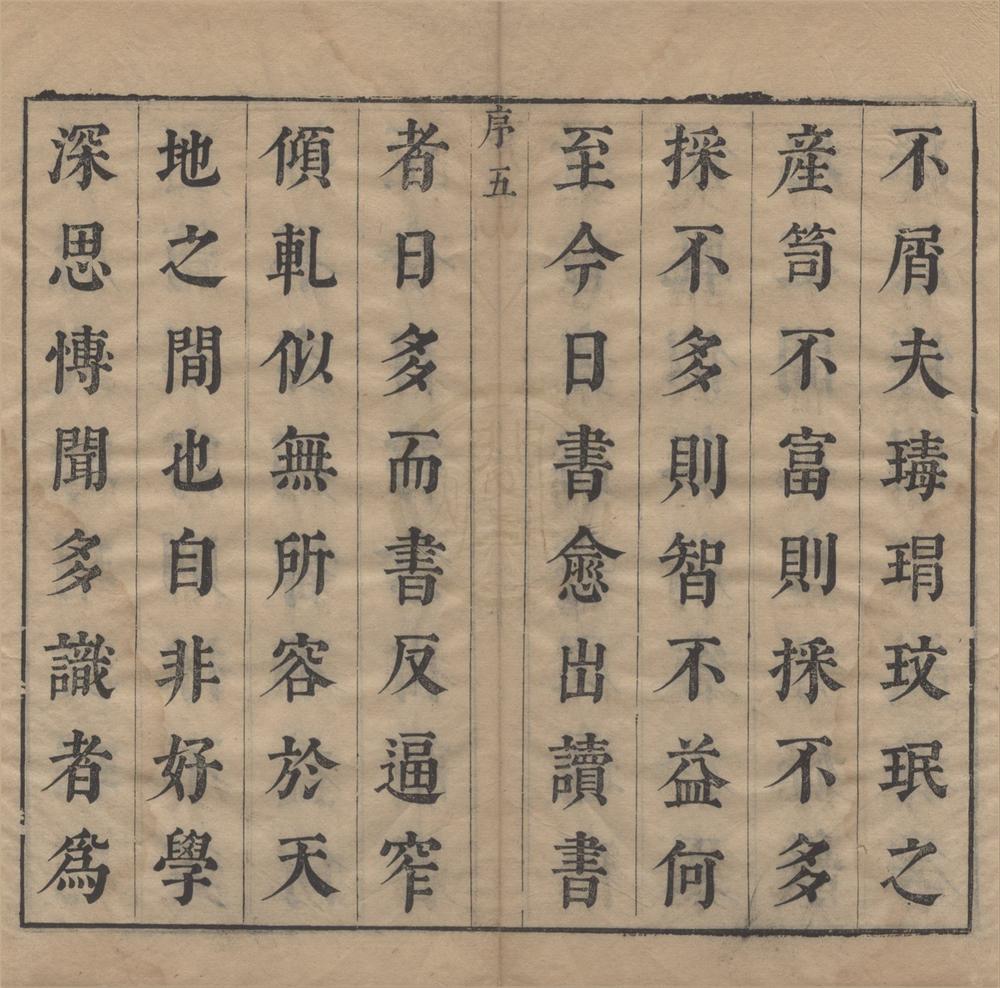 不屑夫瑇瑁玟珉之
産笥不富則採不多
採不多則智不益何
至今日書愈出讀書
序五
者日多而書反逼窄
傾軋似無所容於天
地之間也自非好學
深思慱聞多識者爲